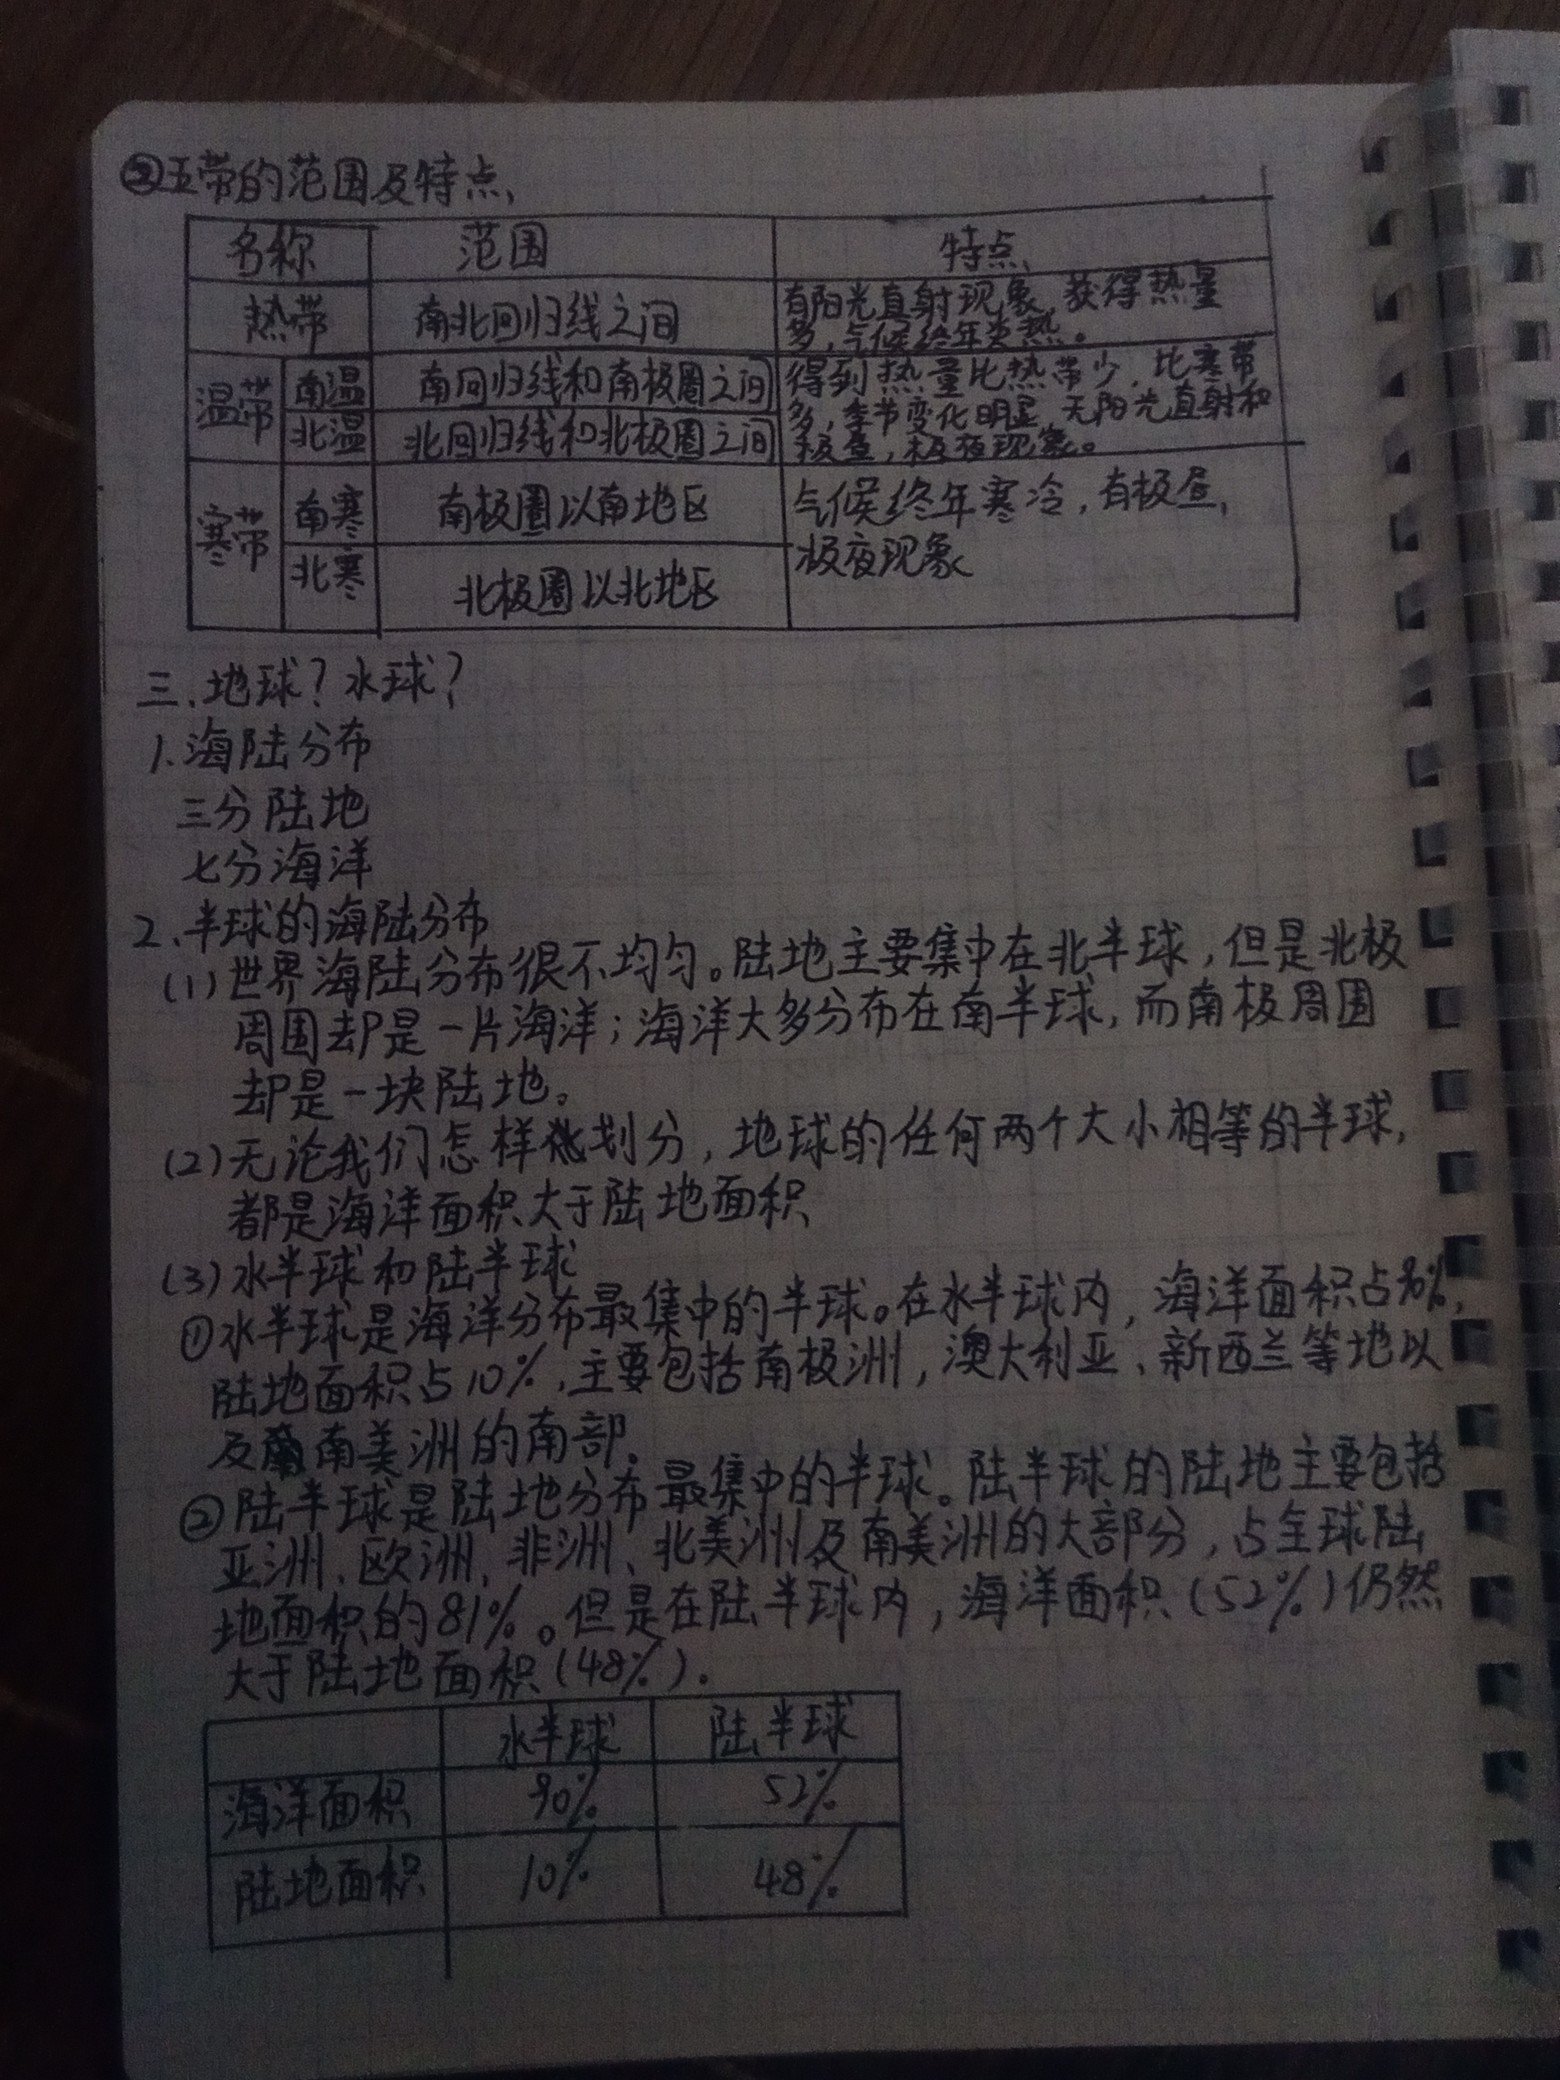 ②五带的范围及特点
名称 范围 特点
热带 南北回归线之间 有阳光直射现象，获得热量
多，气候终年炎热。
温带 南温 南回归线和南极圈之间 得到热量比热带少，比寒带
北温 北回归线和北极圈之间 多，季节变化明显，无阳光直射和
极昼，极夜现象。
寒带 南寒 南极圈以南地区 气候终年寒冷，有极昼、
极夜现象
北寒 北极圈以北地区
三、地球？水球？
1.海陆分布
三分陆地
七分海洋
2、半球的海陆分布
(1)世界海陆分布很不均匀。陆地主要集中在北半球，但是北极
周围却是一片海洋；海洋大多分布在南半球，而南极周围
却是一块陆地。
(2)无论我们怎样划分，地球的任何两个大小相等的半球，
都是海洋面积大于陆地面积
(3)水半球和陆半球
①水半球是海洋分布最集中的半球。在水半球内，海洋面积占90%，
陆地面积占10%，主要包括南极洲，澳大利亚、新西兰等地以
及南美洲的南部。
②陆半球是陆地分布最集中的半球。陆半球的陆地主要包括
亚洲、欧洲、非洲、北美洲及南美洲的大部分，占全球陆
地面积的81%。但是在陆半球内，海洋面积(52%)仍然
大于陆地面积(48%)。
水半球 陆半球
海洋面积 90% 52%
陆地面积 10% 48%